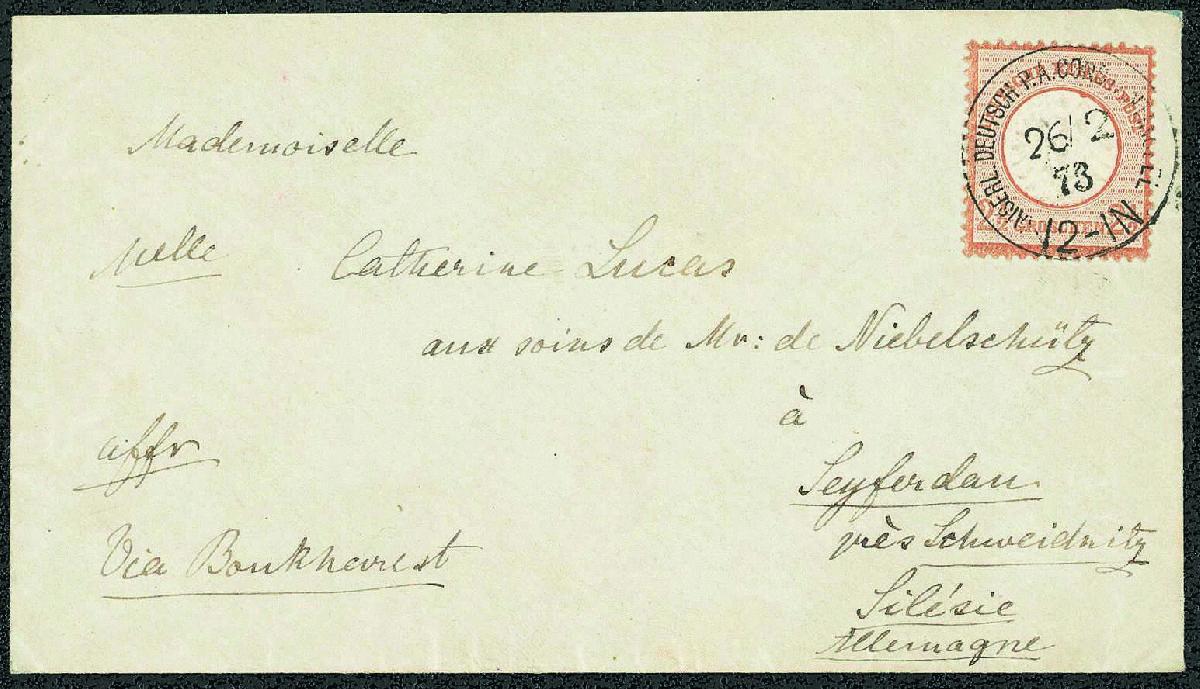 Mademoiselle
Melle Catherine Lucas
aux soins de Mr: de Niebelschütz
à
affr
Seyferdau
près Schweidnitz
Via Boukharest
Silésie
Allemagne
DEUTSCH P.A.
26/2
73
12-1N